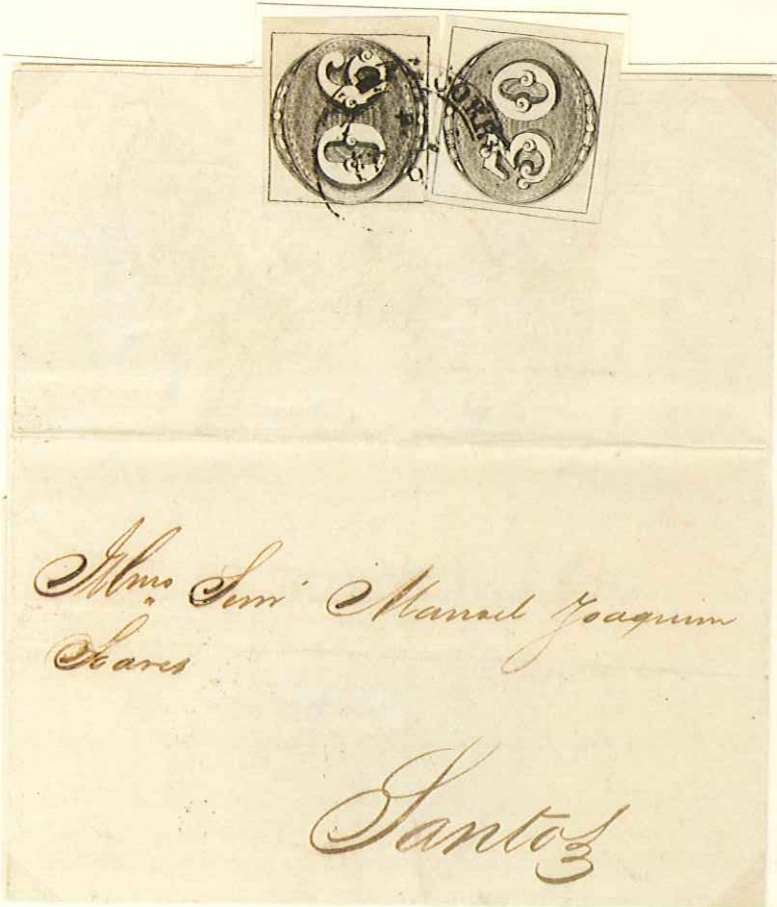 CORR
Illmo Senr Manoel Joaquim
Soares
Santos